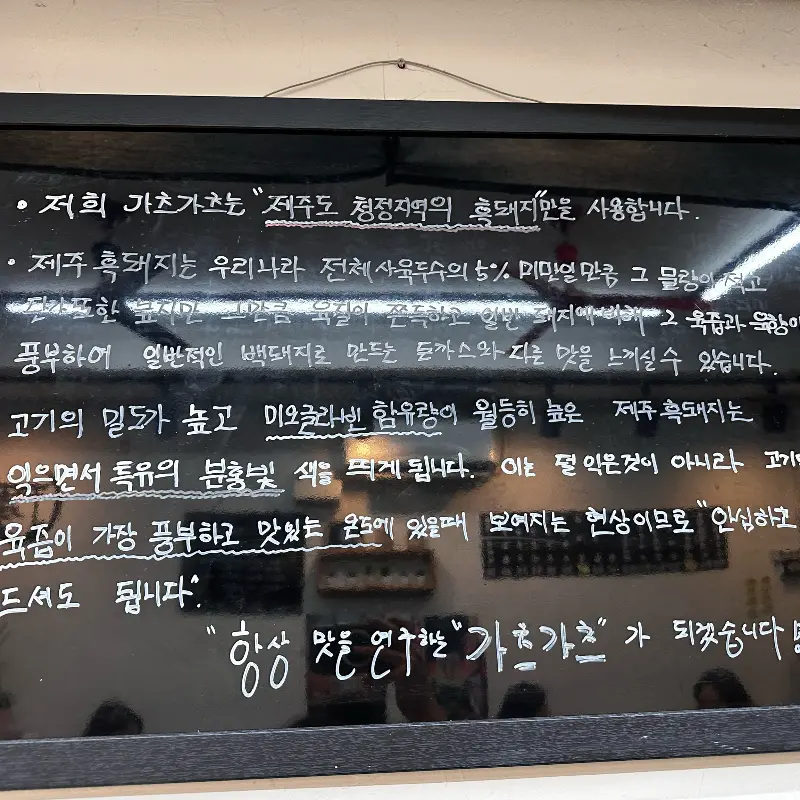 • 저희 가츠가츠는 "제주도 청정지역의 흑돼지"만을 사용합니다.
• 제주 흑돼지는 우리나라 전체사육두수의 5% 미만일만큼 그 물량이 적고
단가또한 높지만 그만큼 육질이 쫀득하고 일반 돼지에 비해 그 육즙과 육향이
풍부하여 일반적인 백돼지로 만드는 돈까스와 다른 맛을 느끼실 수 있습니다.
고기의 밀도가 높고 미오글라빈 함유량이 월등히 높은 제주 흑돼지는
익으면서 특유의 분홍빛 색을 띄게 됩니다. 이는 덜 익은것이 아니라
육즙이 가장 풍부하고 맛있는 온도에 있을때 보여지는 현상이므로 "안심하고
드셔도 됩니다".
"항상 맛을 연구하는 "가츠가츠" 가 되겠습니다